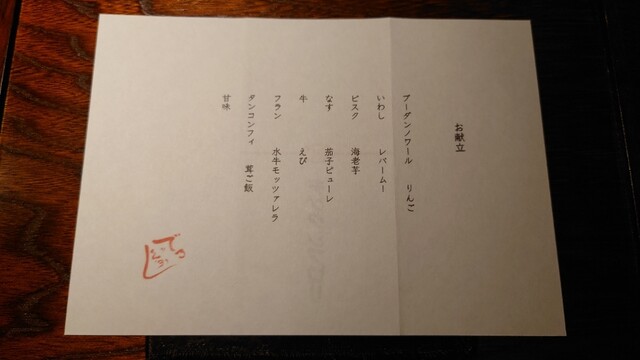 お献立
ブーダンノワール りんご
いわし レバームー
ビスク 海老芋
なす 茄子ピューレ
牛 えび
フラン 水牛モッツァレラ
タンコンフィ 茸ご飯
甘味